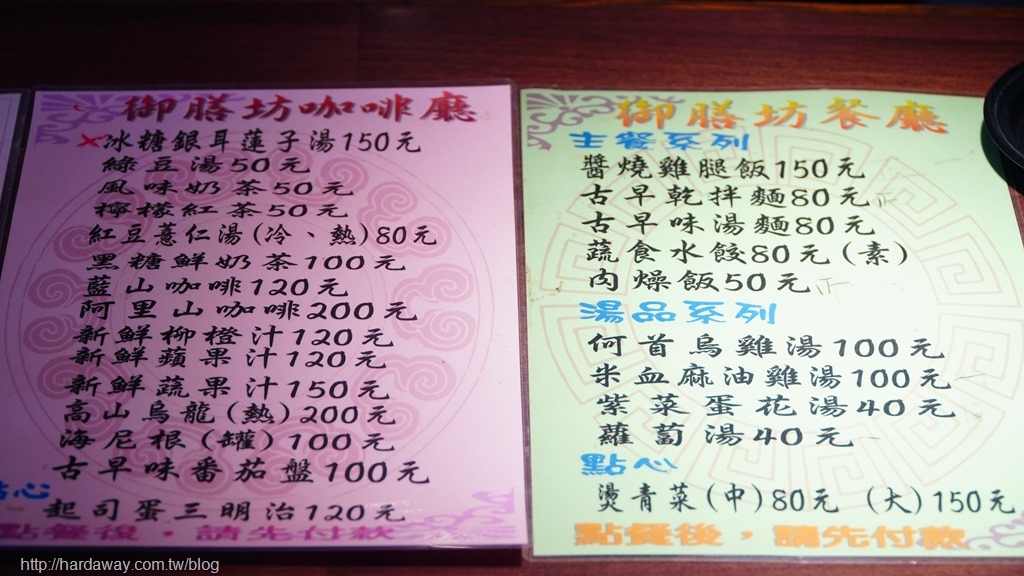 御膳坊咖啡廳
冰糖銀耳蓮子湯150元
綠豆湯50元
風味奶茶50元
檸檬紅茶50元
紅豆薏仁湯(冷、熱)80元
黑糖鮮奶茶100元
藍山咖啡120元
阿里山咖啡200元
新鮮柳橙汁120元
新鮮蘋果汁120元
新鮮蔬果汁150元
高山烏龍(熱)200元
海尼根(罐)100元
古早味番茄盤100元
點心
起司蛋三明治120元
點餐後，請先付款
御膳坊餐廳
主餐系列
醬燒雞腿飯150元
古早乾拌麵80元
古早味湯麵80元
蔬食水餃80元(素)
肉燥飯50元
湯品系列
何首烏雞湯100元
米血麻油雞湯100元
紫菜蛋花湯40元
蘿蔔湯40元
點心
燙青菜(中)80元 (大)150元
點餐後，請先付款
http://hardaway.com.tw/blog